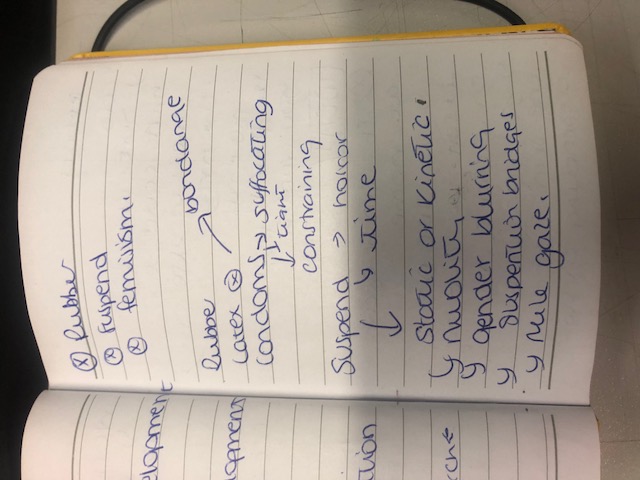 ⓧ Rubber
ⓧ suspend
ⓧ feminism.
bondange
Rubbe
Latex ⓧ ↗
condoms → suffocating
↓ tight
constraining
Suspend → horror
↓ ↳ time
Static or kinetic.
↳ nudity
↳ gender blurring
↳ suspension bridges
↳ Male gaze.
elopment
opment
ation